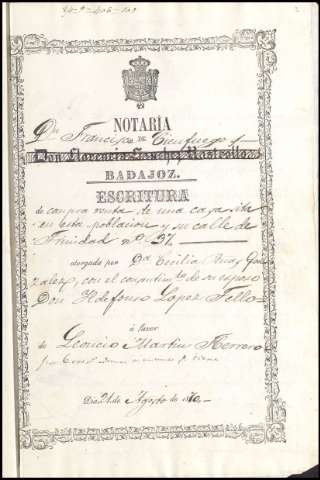 NOTARÍA
DE
Dn Francisco Cienfuegos y
BADAJOZ.
ESCRITURA
de compra venta de una casa sita
en esta poblacion y su calle de
Trinidad nº 37.
otorgada por Dª Cecilia Gon
zalez, con el consentimto de su esposo
Don Ildefonso Lopez Tello
á favor
de Leoncio Martin Herrero
Dia 21 de Agosto de